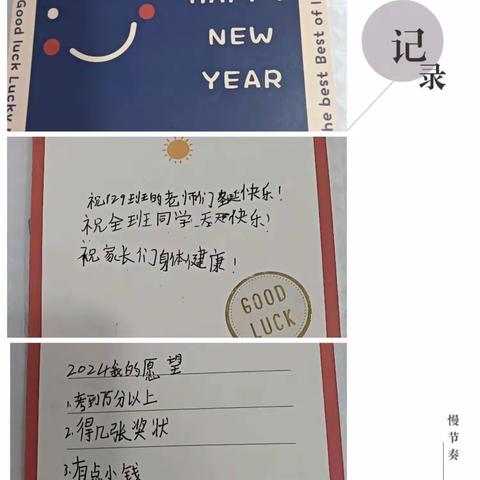 HAPPY
NEW
YEAR
Good luck Lucky
the best Best of l
记录
祝129班的老师们天天快乐!
祝全班同学天天快乐!
祝家长们身体健康!
GOOD
LUCK
2024我的愿望
1.考到百分以上
2.得几张奖状
3.有点小钱
慢节奏